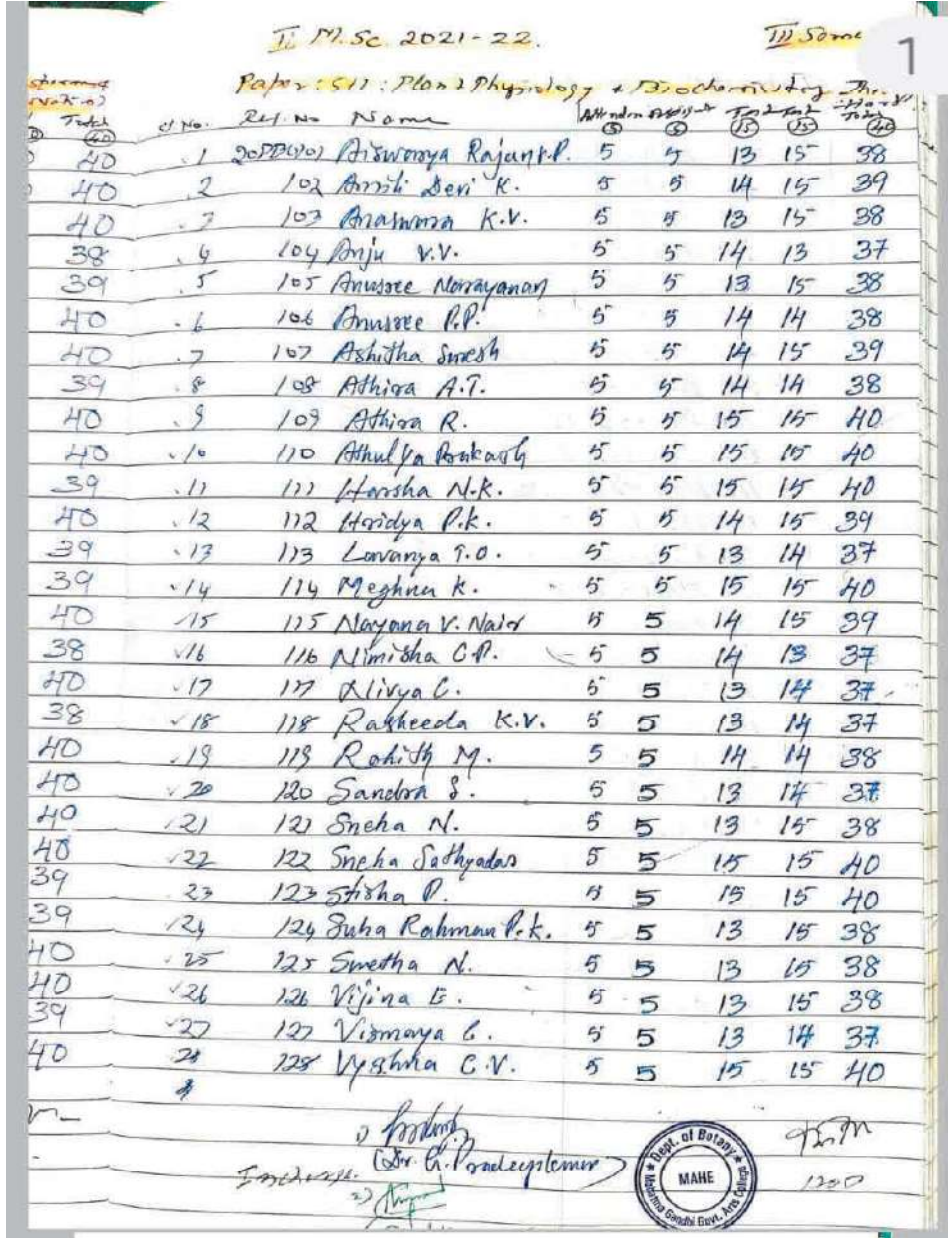 1
II M.Sc. 2021-22. III Seme
Paper: 511: Plant Physiology & Biochemistry
Total Sl No. Reg. No Name Test 1 Test 2 Total
40 5 5 15 15 40
40 1 20PB(101) Aiswarya Rajan P.P. 5 5 13 15 38
40 2 102 Amili Devi K. 5 5 14 15 39
40 3 103 Anaswara K.V. 5 5 13 15 38
38 4 104 Anju V.V. 5 5 14 13 37
39 5 105 Anusree Narrayanan 5 5 13 15 38
40 6 106 Anusree P.P. 5 5 14 14 38
40 7 107 Ashitha Suresh 5 5 14 15 39
39 8 108 Athira A.T. 5 5 14 14 38
40 9 109 Athira R. 5 5 15 15 40
40 10 110 Athulya Prakash 5 5 15 15 40
39 11 111 Harsha N.K. 5 5 15 15 40
40 12 112 Hridya P.K. 5 5 14 15 39
39 13 113 Lavanya T.O. 5 5 13 14 37
39 14 114 Meghna K. 5 5 15 15 40
40 15 115 Nayana V. Nair 5 5 14 15 39
38 16 116 Nimisha C.P. 5 5 14 13 37
40 17 117 Nivya C. 5 5 13 14 37
38 18 118 Rasheeda K.V. 5 5 13 14 37
40 19 119 Rohith M. 5 5 14 14 38
40 20 120 Sandra S. 5 5 13 14 37
40 21 121 Sneha N. 5 5 13 15 38
40 22 122 Sneha Sathyadas 5 5 15 15 40
39 23 123 Stisha P. 5 5 15 15 40
39 24 124 Suha Rahman P.K. 5 5 13 15 38
40 25 125 Swetha N. 5 5 13 15 38
40 26 126 Vijina E. 5 5 13 15 38
39 27 127 Vismaya C. 5 5 13 14 37
40 28 128 Vyshna C.V. 5 5 15 15 40
1)
(Dr. G. Pradeepkumar)
Incharge.
2)
Dept. of Botany
MAHE
Mahatma Gandhi Govt. Arts College